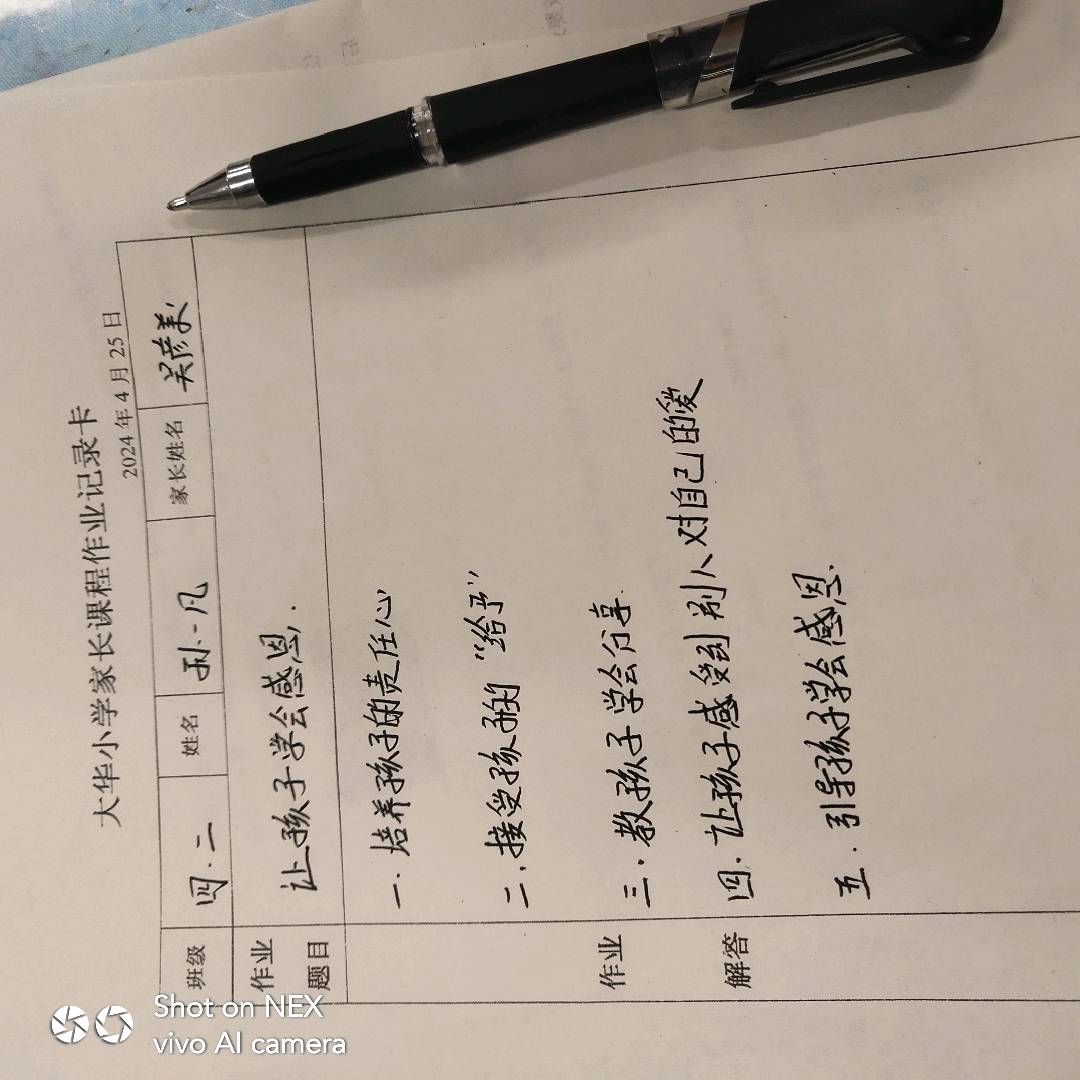 大华小学家长课程作业记录卡
2024年4月25日
班级 四.二 姓名 孙一凡 家长姓名 吴彦美
作业题目 让孩子学会感恩.
作业解答
一.培养孩子的责任心
二.接受孩子的“给予”
三.教孩子学会分享
四.让孩子感受到别人对自己的爱
五.引导孩子学会感恩.
Shot on NEX
vivo AI camera